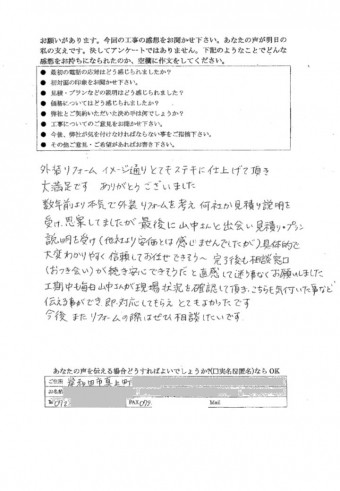 お願いがあります。今回の工事の感想をお聞かせ下さい。あなたの声が明日の
私の支えです。決してアンケートではありません。下記のようなことでどんな
感想をお持ちになられたのか、空欄に作文をしてください。
● 最初の電話の応対はどう感じられましたか？
● 初対面の印象をお聞かせ下さい。
● 見積・プランなどの説明はどう感じられましたか？
● 価格についてはどう感じられましたか？
● 弊社とご契約いただいた決め手は何でしょうか？
● 工事についてのご意見をお聞かせ下さい。
● 今後、弊社が気を付けなければならない事をご指摘下さい。
● その他ご意見・ご希望があればお書き下さい。
外装リフォーム イメージ通りとてもステキに仕上げて頂き
大満足です ありがとうございました
数年前より本気で外装リフォームを考え 何社か見積り説明を
受け、思案してましたが 最後に山中さんと出会い 見積り・プラン
説明を受け(他社より安価とは感じませんでしたが)具体的で
大変わかりやすく 信頼してお任せできそう〜 完了後も相談窓口
(おつき合い)が続き安心できそうだ と直感して迷う事なくお願いしました
工期中も毎日山中さんが現場状況を確認して頂き、こちらも気付いた事など
伝える事ができ 即対応してもらえ とてもよかったです
今後 またリフォームの際はぜひ相談したいです
あなたの声を伝える場合どうすればよいでしょうか
なら OK
ご住所 岸和田市
お名前
FAX
Mail